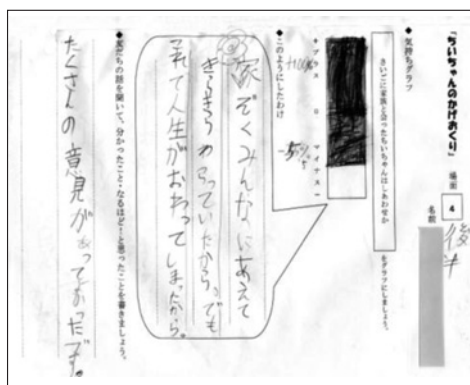 「ちいちゃんのかげおくり」 場面 4 後半
名前
◆気持ちグラフ
さいごに家族と会ったちいちゃんはしあわせか をグラフにしましょう。
+プラス 0 マイナス-
+100%
◆このようにしたわけ
家ぞくみんなにあえて
きらきらわらっていたから。でも
それで人生がおわってしまったから。
◆友だちの話を聞いて、分かったこと・なるほど!と思ったことを書きましょう。
たくさんの意見が